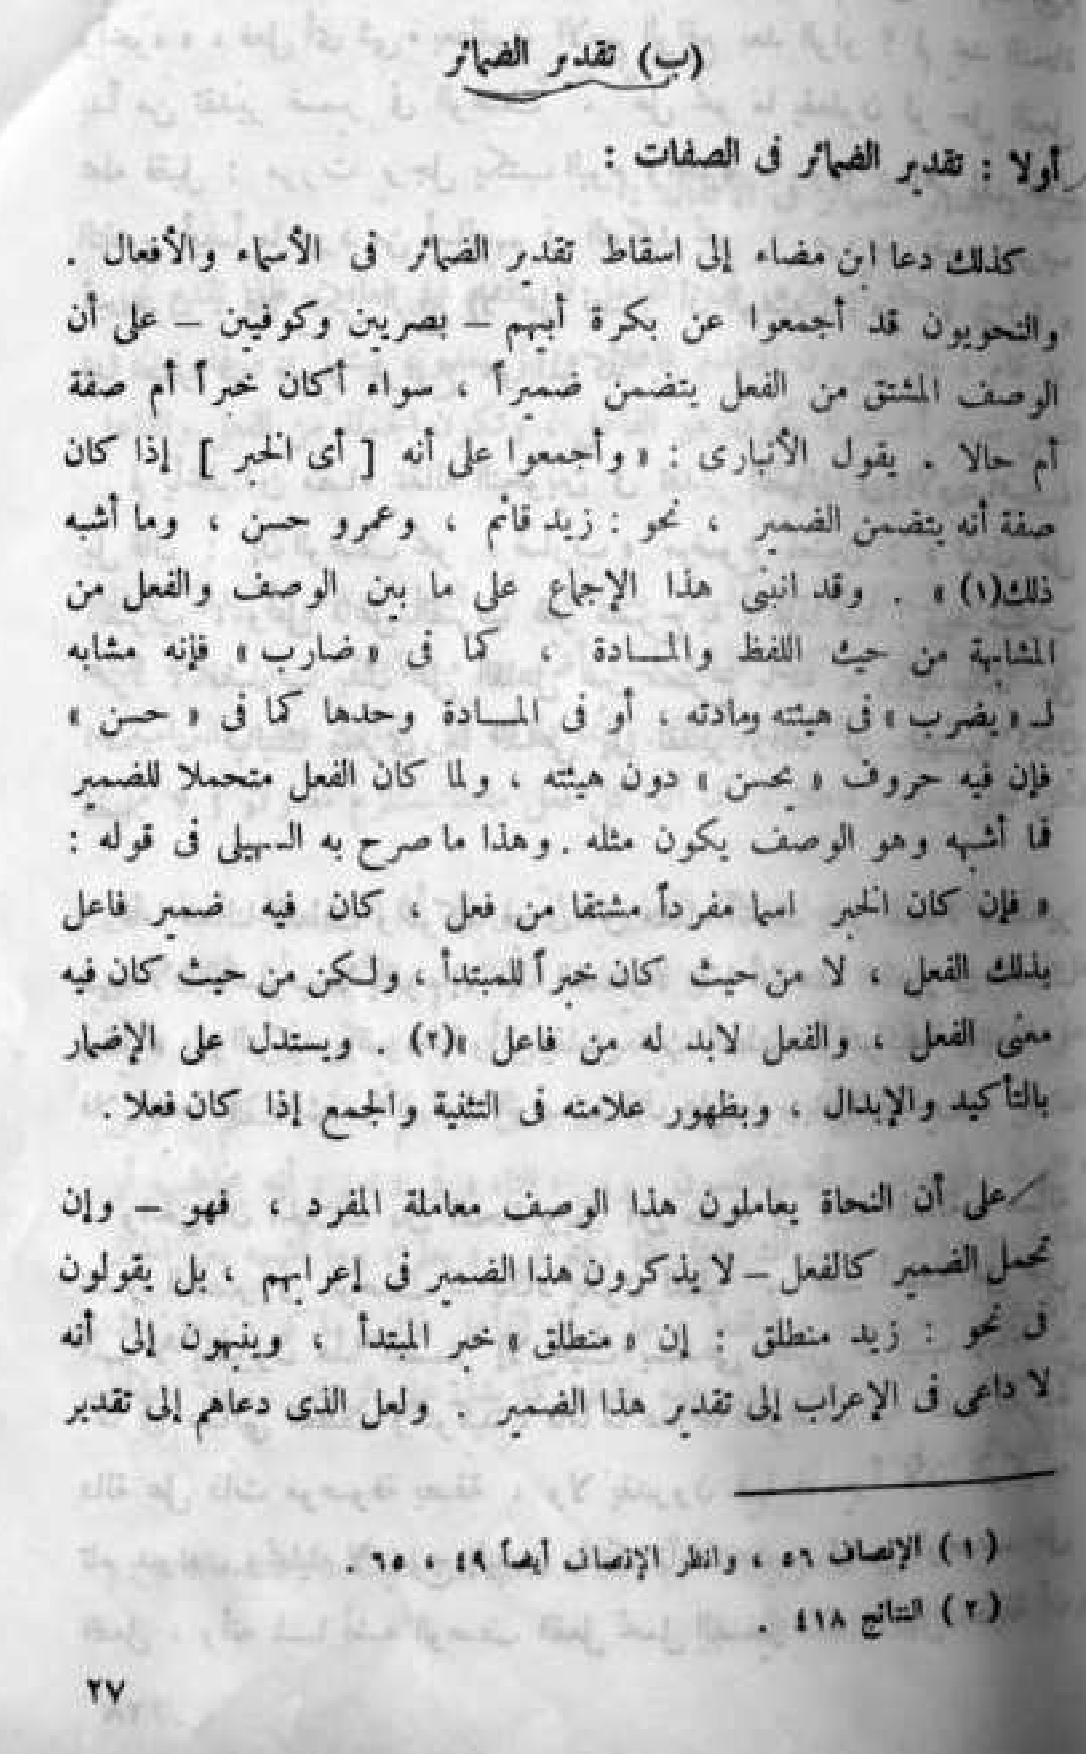 (ب) تقدير الضمائر
أولا : تقدير الضمائر فى الصفات :
كذلك دعا ابن مضاء إلى اسقاط تقدير الضمائر فى الأسماء والأفعال .
والنحويون قد أجمعوا عن بكرة أبيهم – بصريين وكوفيين – على أن
الوصف المشتق من الفعل يتضمن ضميراً ، سواء أكان خبراً أم صفة
أم حالا . يقول الأنبارى : « وأجمعوا على أنه [ أى الخبر ] إذا كان
صفة أنه يتضمن الضمير ، نحو : زيد قائم ، وعمرو حسن ، وما أشبه
ذلك(١) » . وقد انبنى هذا الإجماع على ما بين الوصف والفعل من
المشابهة من حيث اللفظ والمــادة ، كما فى « ضارب » فإنه مشابه
لـ « يضرب » فى هيئته ومادته ، أو فى المــادة وحدها كما فى « حسن »
فإن فيه حروف « يحسن » دون هيئته ، ولما كان الفعل متحملا للضمير
فما أشبهه وهو الوصف يكون مثله . وهذا ما صرح به السهيلى فى قوله :
« فإن كان الخبر اسما مفرداً مشتقا من فعل ، كان فيه ضمير فاعل
بذلك الفعل ، لا من حيث كان خبراً للمبتدأ ، ولكن من حيث كان فيه
معنى الفعل ، والفعل لابد له من فاعل »(٢) . ويستدل على الإضمار
بالتأكيد والإبدال ، وبظهور علامته فى التثنية والجمع إذا كان فعلا .
على أن النحاة يعاملون هذا الوصف معاملة المفرد ، فهو – وإن
تحمل الضمير كالفعل – لا يذكرون هذا الضمير فى إعرابهم ، بل يقولون
فى نحو : زيد منطلق : إن « منطلق » خبر المبتدأ ، وينبهون إلى أنه
لا داعى فى الإعراب إلى تقدير هذا الضمير . ولعل الذى دعاهم إلى تقدير
(١) الإنصاف ٥٦ ، وانظر الإنصاف أيضاً ٤٩ ، ٦٥ .
(٢) النتائج ٤١٨ .
٢٧